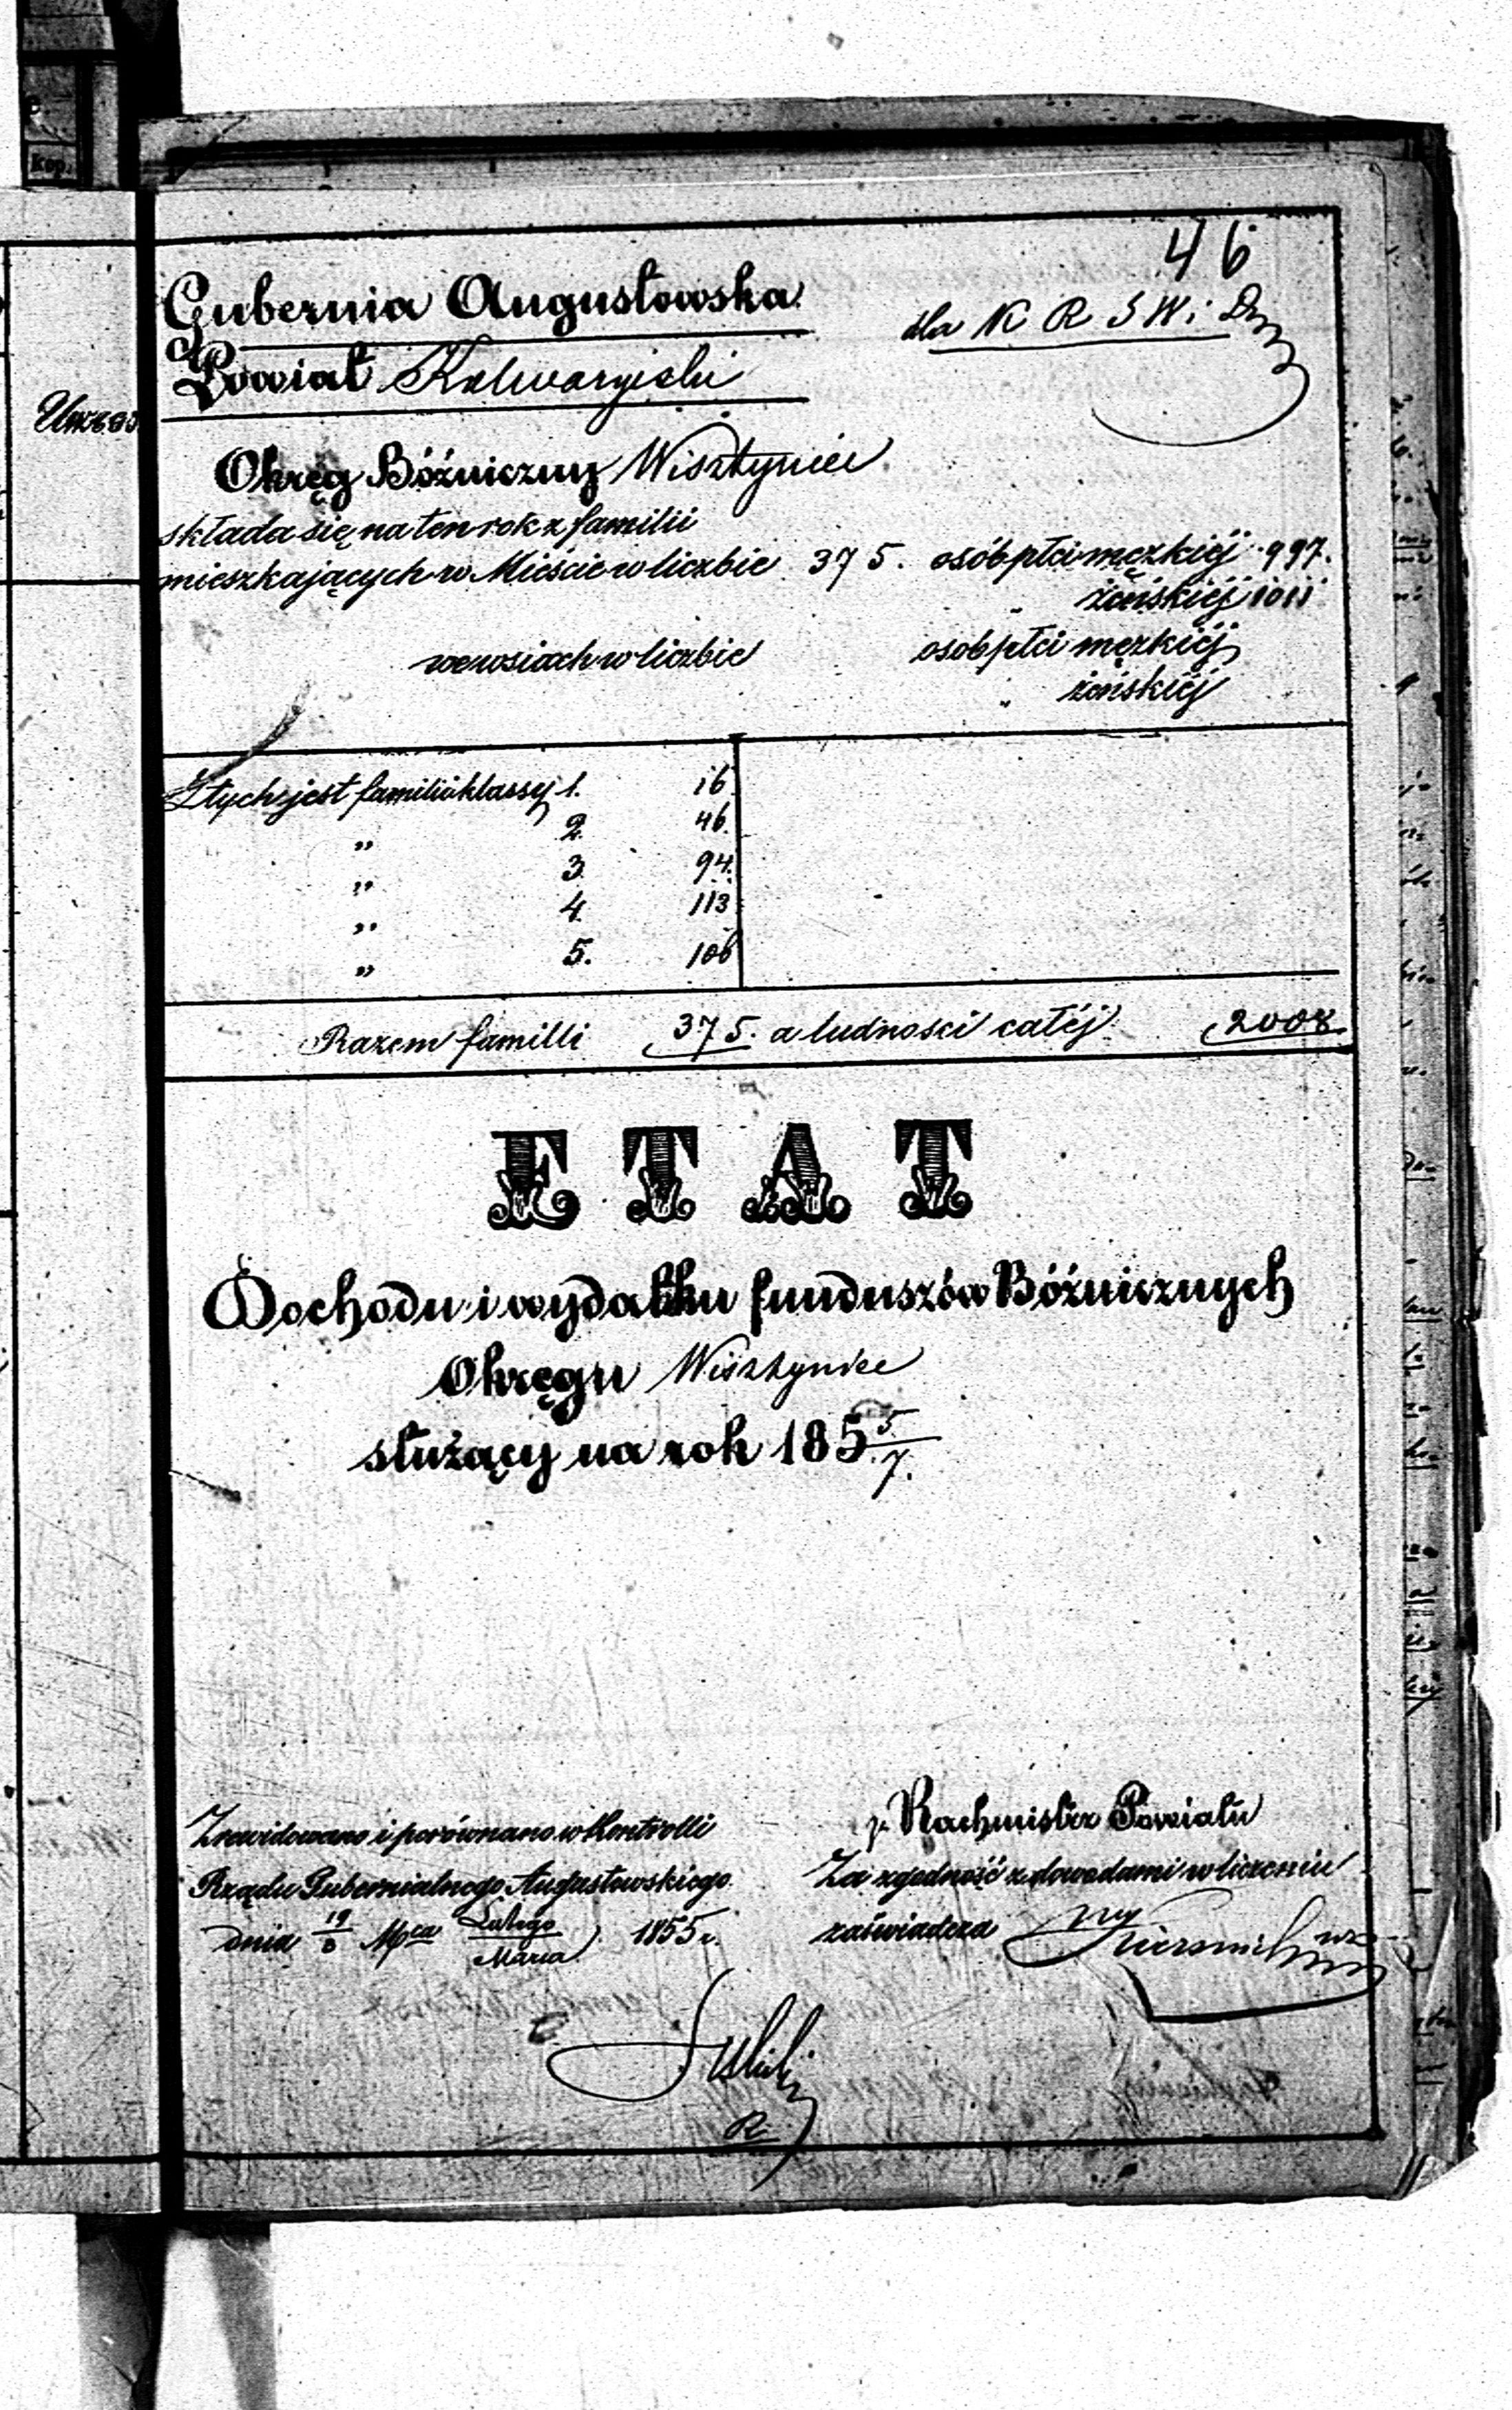 46
Gubernia Augustowska
dla K R S W i D
Powiat Kalwaryjski
Okręg Bóźniczny Wisztyniec
składa się na ten rok z familii
mieszkających w Mieście w liczbie 375. osób płci męzkiéj 997.
„ żeńskiéj 1011
we wsiach w liczbie osób płci męzkiéj
„ żeńskiéj
Z tych jest familii klassy 1. 16
„ 2. 46.
„ 3. 94.
„ 4. 113
„ 5. 106
Razem familli 375. a ludności całéj 2008
ETAT
Dochodu i wydatku funduszów Bóźnicznych
Okręgu Wisztyniec
służący na rok 185 5/7.
Zrewidowano i porównano w Kontrolli
Rządu Gubernialnego Augustowskiego
dnia Mca Lutego/Marca 1855 r.
Rachmistrz Powiatu
Za zgodność z dowodami w liczeniu
zaświadcza
kop.